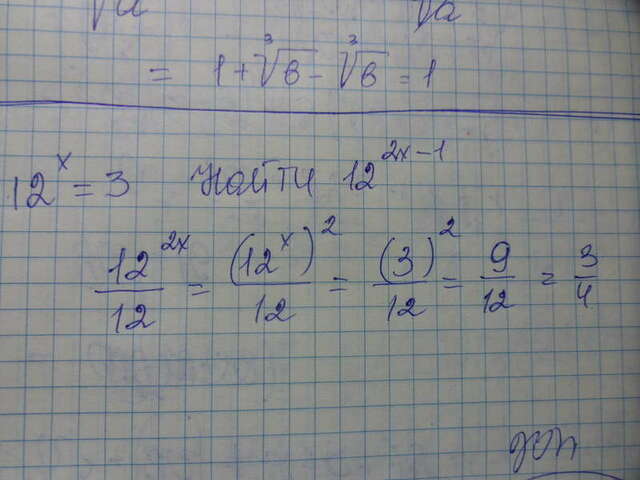 √a
= 1 + ∛в - ∛в = 1
12^x = 3 Найти 12^(2x-1)
12^(2x)/12 = (12^x)^2/12 = (3)^2/12 = 9/12 = 3/4
доп